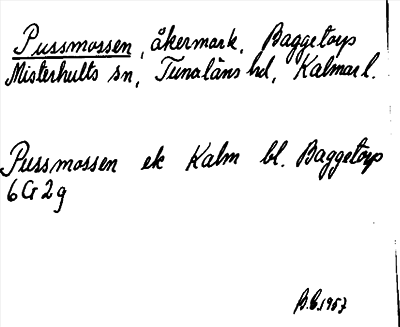 Pussmossen, åkermark, Baggetorp
Misterhults sn, Tunaläns hd, Kalmar l.
Pussmossen ek Kalm bl. Baggetorp
6G2g
B.E. 1957